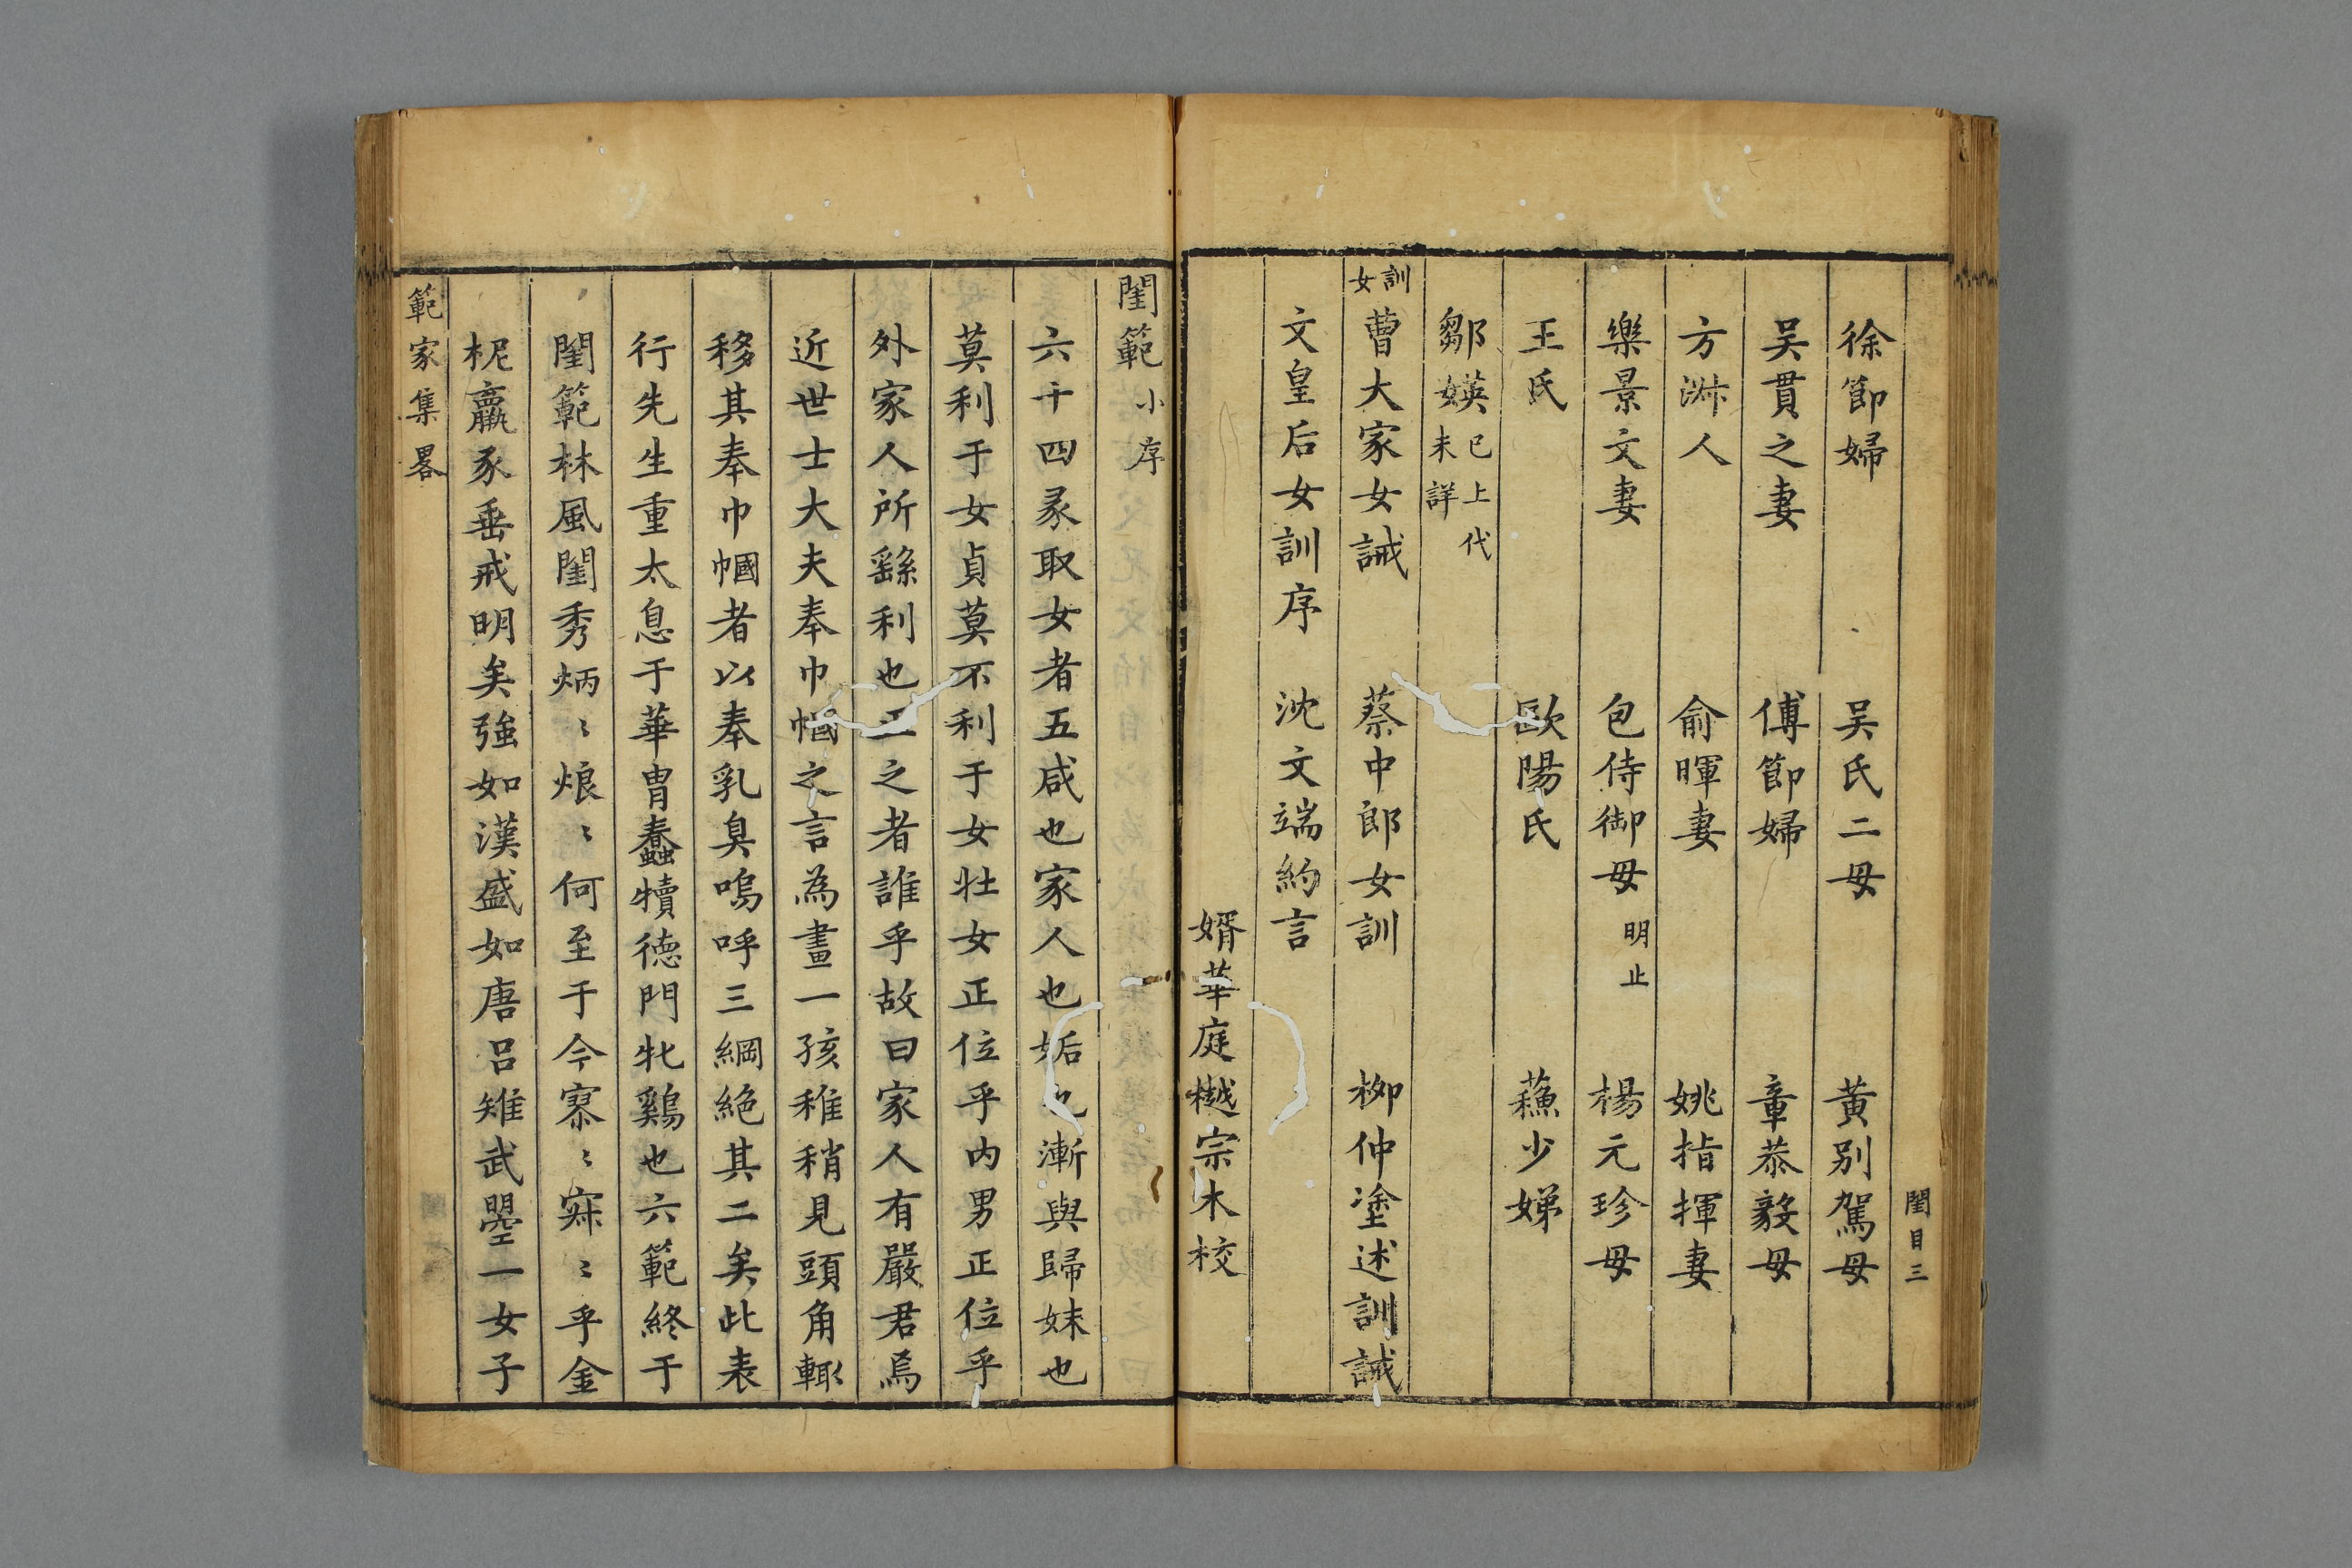 閨目三
徐節婦 吴氏二母 黄别駕母
吴貫之妻 傅節婦 章恭毅母
方淋人 俞暉妻 姚指揮妻
樂景文妻 包侍御母 明止 楊元珍母
王氏 歐陽氏 蘓少娣
鄒媖 已上代未詳
訓女 曹大家女誡 蔡中郎女訓 栁仲塗述訓誡
文皇后女訓序 沈文端約言
婿華庭樾宗木校
閨範 小序
六十四彖取女者五咸也家人也姤也漸與歸妹也
莫利于女貞莫不利于女壮女正位乎内男正位乎
外家人所繇利也正之者誰乎故曰家人有嚴君焉
近世士大夫奉巾幗之言為畫一孩稚稍見頭角輙
移其奉巾幗者以奉乳臭嗚呼三綱絶其二矣此表
行先生重太息于華胄蠢犢德門牝鷄也六範終于
閨範林風閨秀炳〻烺〻何至于今寥〻寂〻乎金
柅羸豕垂戒明矣強如漢盛如唐吕雉武曌一女子
範家集畧